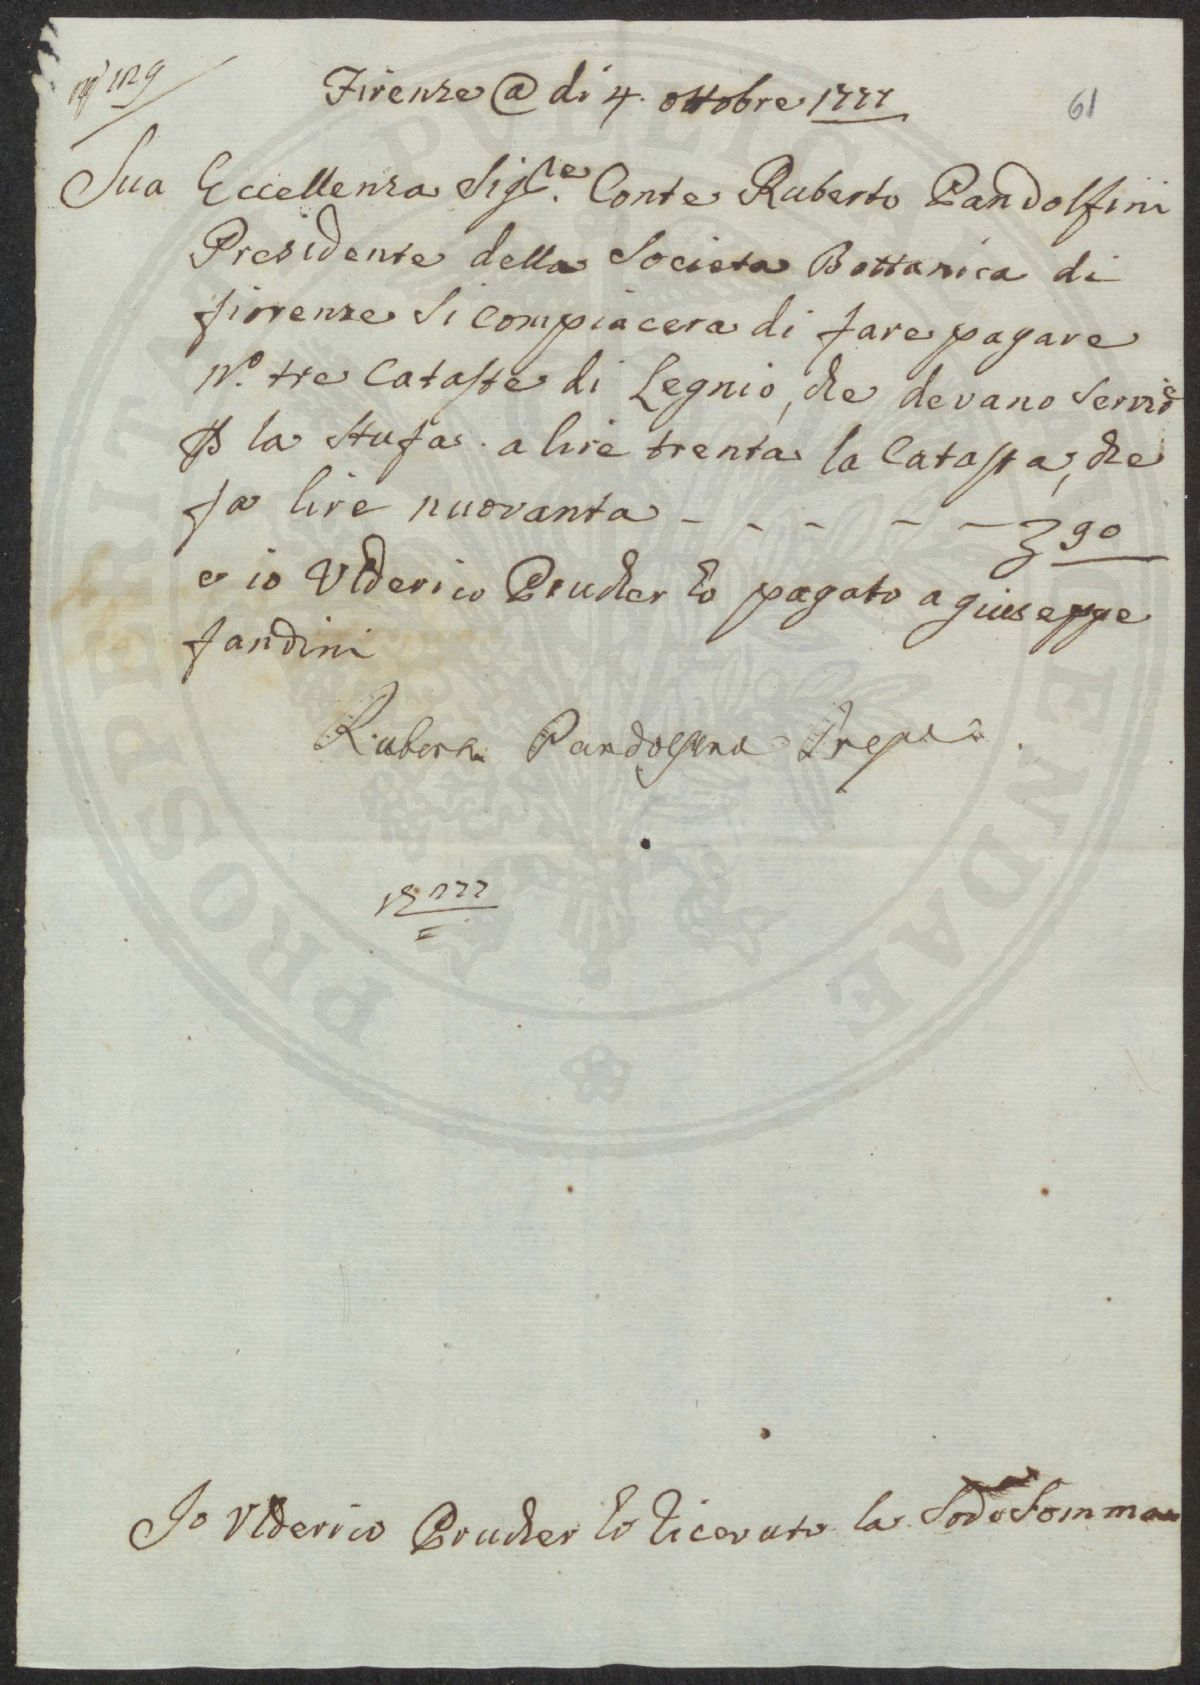 129
61
Firenze @ di 4. ottobre 1777
Sua Eccellenza Sig.re Conte Ruberto Pandolfini
Presidente della Societa Bottanica di
fiorenze Si compiacera di fare pagare
N.o tre Cataste di Legnio, che devano Servire
P la Stufa. a lire trenta la Catasta, che
fa lire nuovanta - - - - - - 90
e io Vlderico Prucher ho pagato a giuseppe
fandini
Ruberto Pandolfini
Io Vlderico Prucher ho Ricevuto la Soda Somma
PROSPERITATI PVBLICAE AVGENDAE